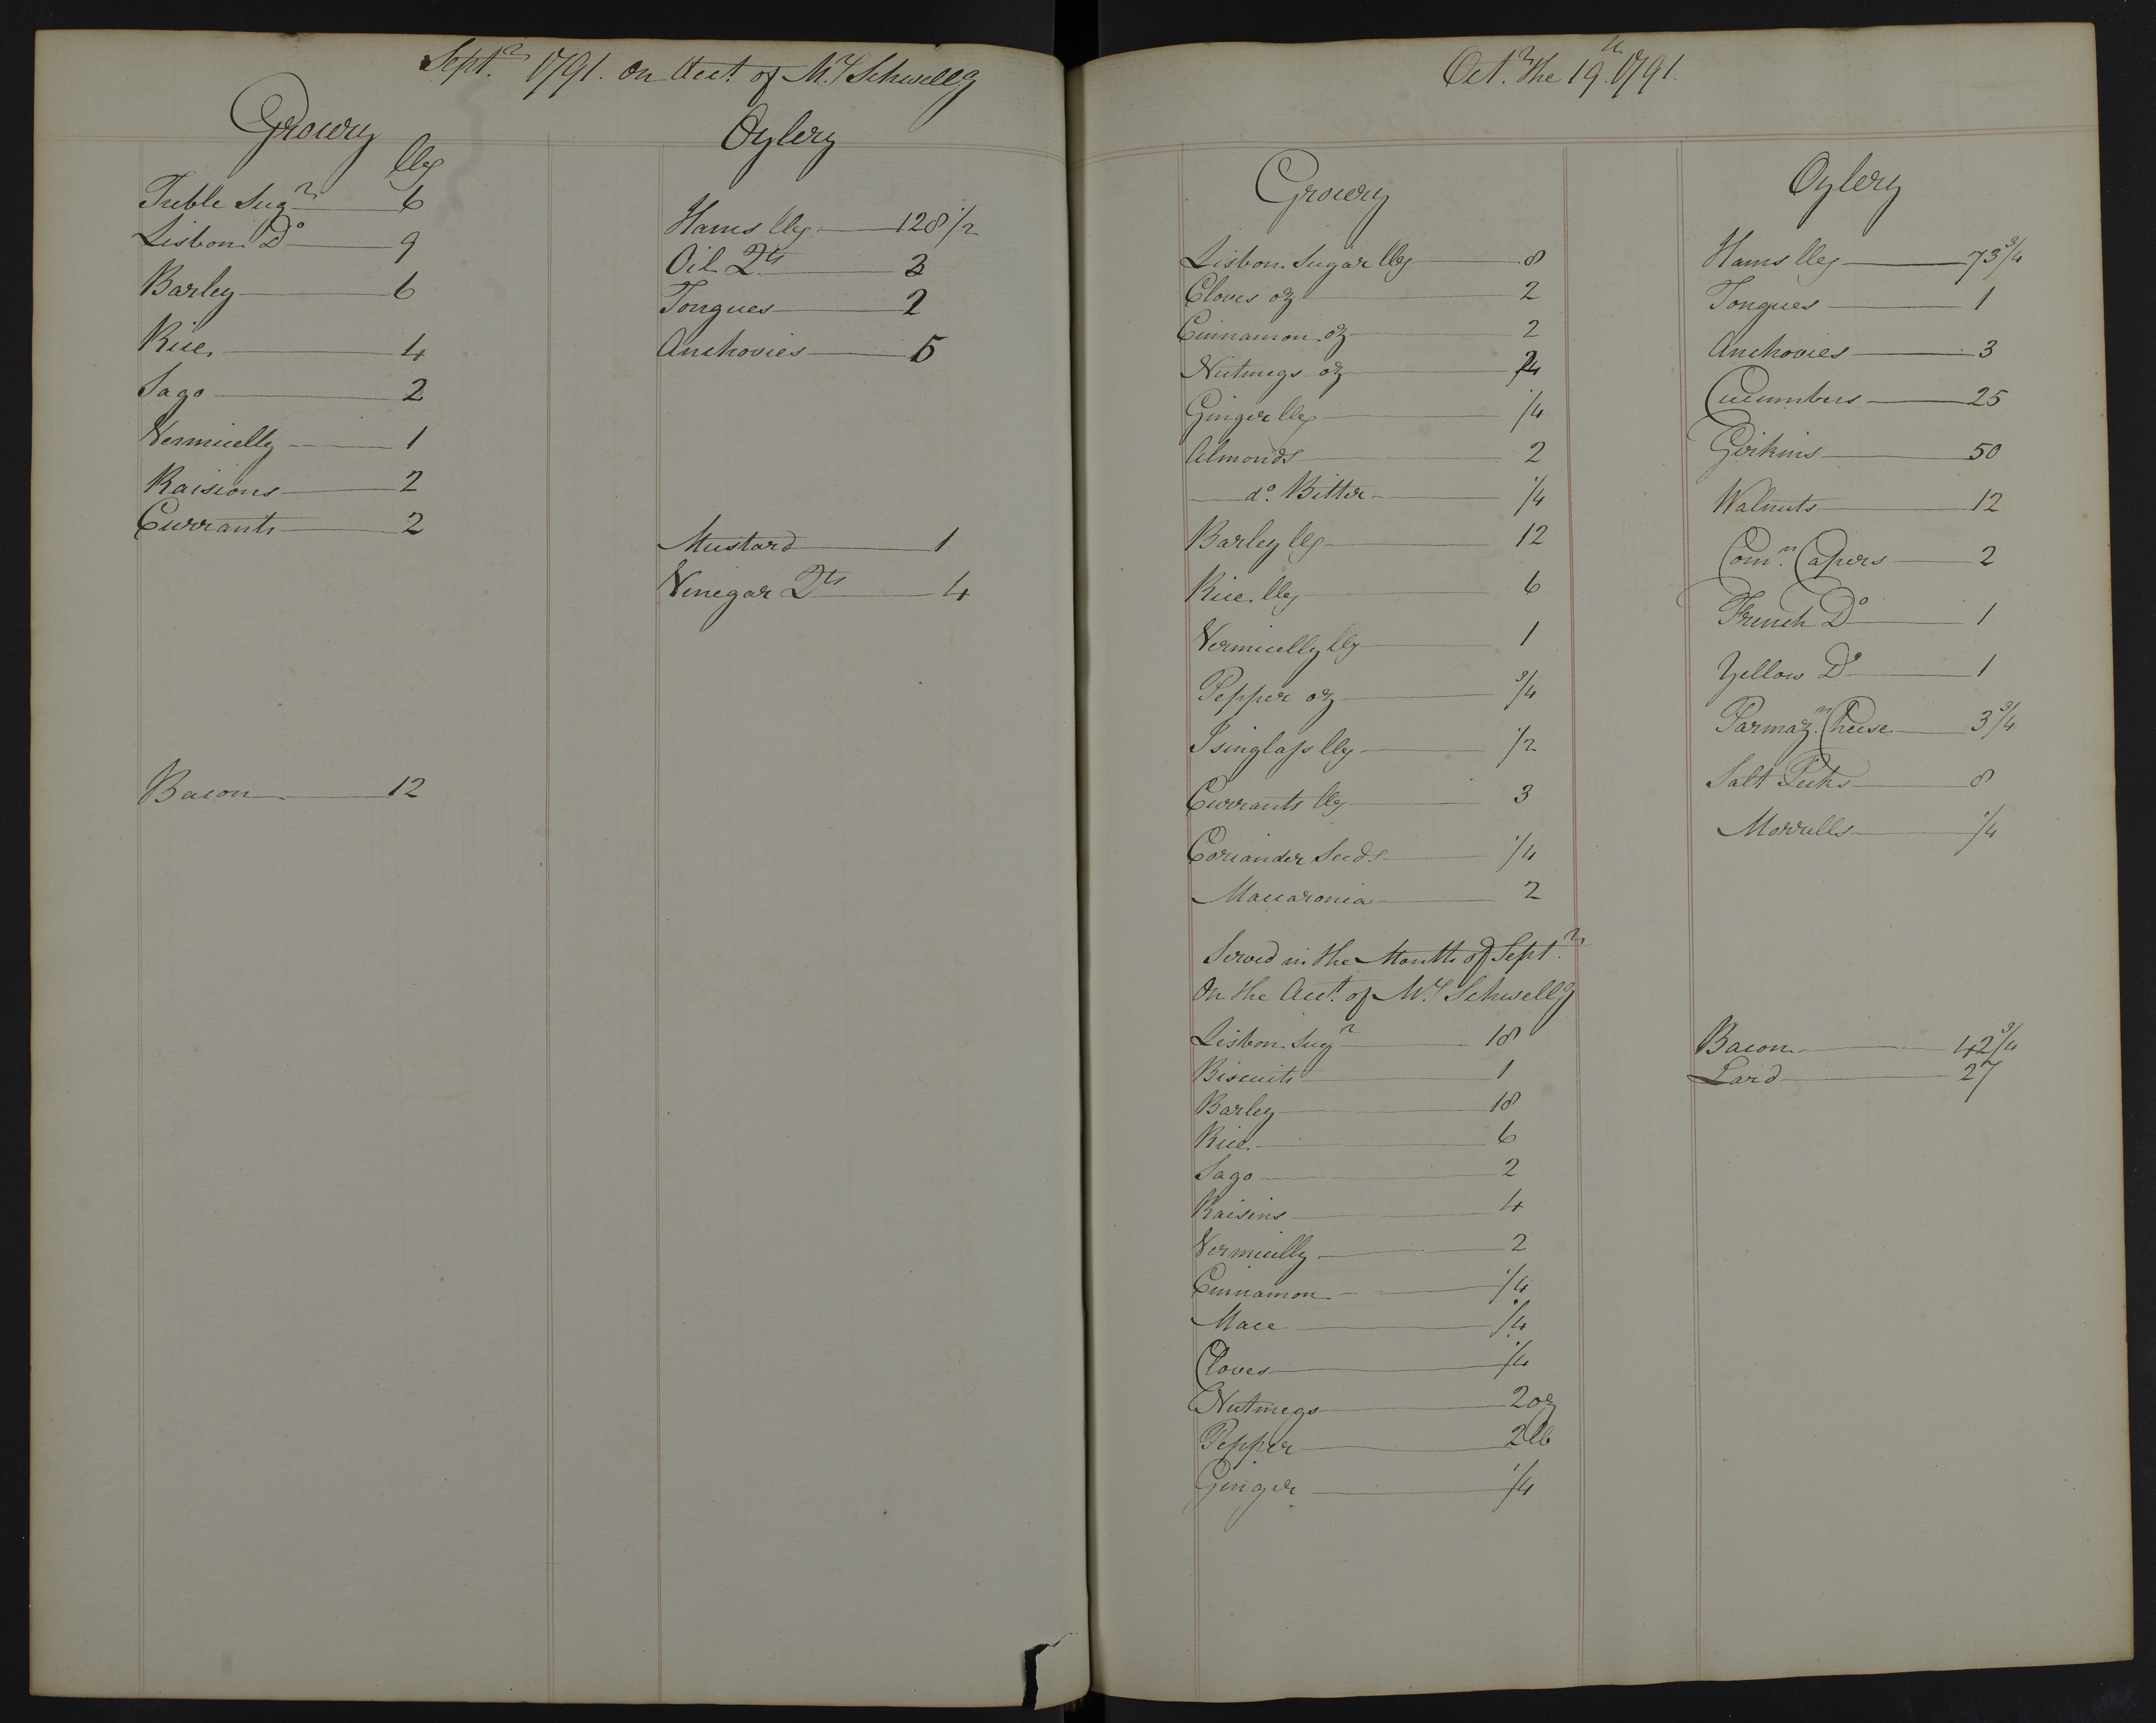 Sept.r 1791. On Acct. of Mrs Schwellg
Grocery
lbs
Treble Sugr 6
Lisbon Do 9
Barley 6
Rice 4
Sago 2
Vermicelly 1
Raisions 2
Currants 2
Bacon 12
Oylery
Hams lbs 128 1/2
Oil Qts
Tongues 2
Anchovies 5
Mustard 1
Vinegar Qts 4
Oct.r The 19.th 1791.
Grocery
Lisbon Sugar lbs 8
Cloves oz 2
Cinnamon oz 2
Nutmegs oz
Ginger lbs 1/4
Almonds 2
do. Bitter 1/4
Barley lbs 12
Rice lbs 6
Vermicelly lbs 1
Pepper oz 3/4
Isinglass lbs 1/2
Currants lbs 3
Coriander Seeds 1/4
Maccaronia 2
Served in the Month of Sept.r
On the Acct. of Mrs Schwellg
Lisbon Sugr 18
Biscuits 1
Barley 18
Rice 6
Sago 2
Raisins 4
Vermicelly 2
Cinnamon 1/4
Mace 1/4
Cloves 1/4
Nutmegs 2 oz
Pepper 2 lb
Ginger 1/4
Oylery
Hams lbs 73 3/4
Tongues 1
Anchovies 3
Cucumbers 25
Girkins 50
Walnuts 12
Com.n Capers 2
French Do 1
Yellow Do 1
Parmaz.n Cheese 3 3/4
Salt Pecks 8
Morrells 1/4
Bacon 42 3/4
Lard 27